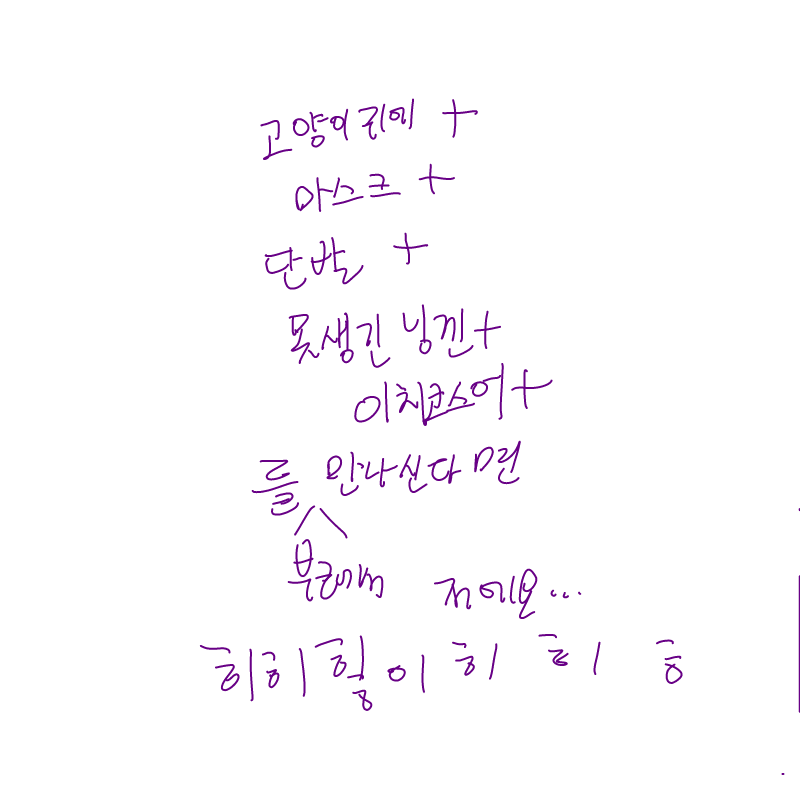 고양이귀에 +
마스크 +
단발 +
못생긴 닝낀+
이치코스어+
를 만나신다면
부코에서 저에요...
히히힣이히 히ㅣ ㅎ